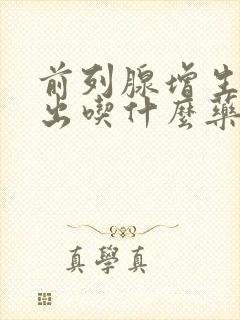 前列腺增生
出喫什麼藥
真學真